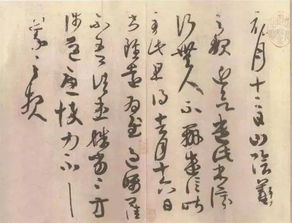 初月十二日山陰羲
之報近欲遣此書停
行無人不辦遣信昨
至此旦得去月十六日
書雖遠為慰過囑卿
佳不吾諸患殊劣殊劣方
涉道憂悴力不具
羲之報